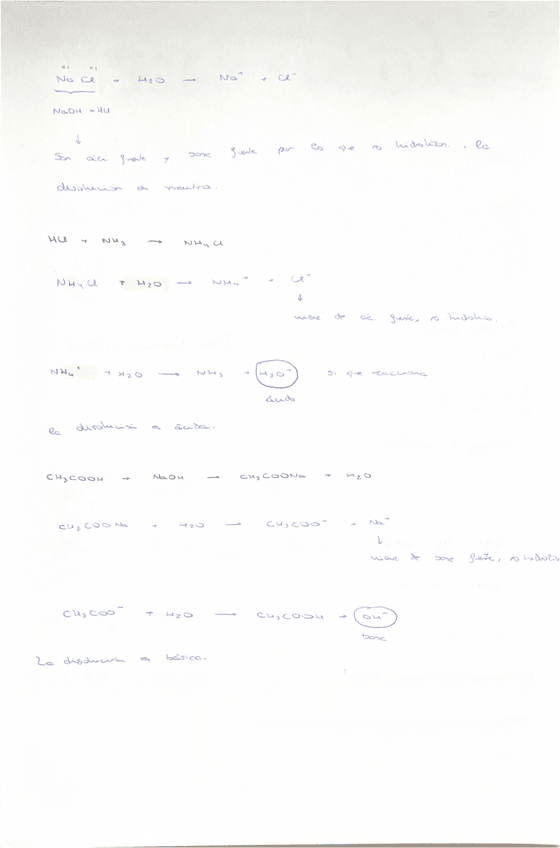 +1 -1
Na Cl + H2O → Na+ + Cl-
NaOH + HCl
↓
Son ácido fuerte y base fuerte por lo que no hidroliza. La
disolución es neutra.
HCl + NH3 → NH4Cl
NH4Cl + H2O → NH4+ + Cl-
↓
viene de ác. fuerte, no hidroliza.
NH4+ + H2O → NH3 + H3O+ si que reacciona
ácido
la disolución es ácida.
CH3COOH + NaOH → CH3COONa + H2O
CH3COONa + H2O → CH3COO- + Na+
↓
viene de base fuerte, no hidroliza
CH3COO- + H2O → CH3COOH + OH-
base
La disolución es básica.